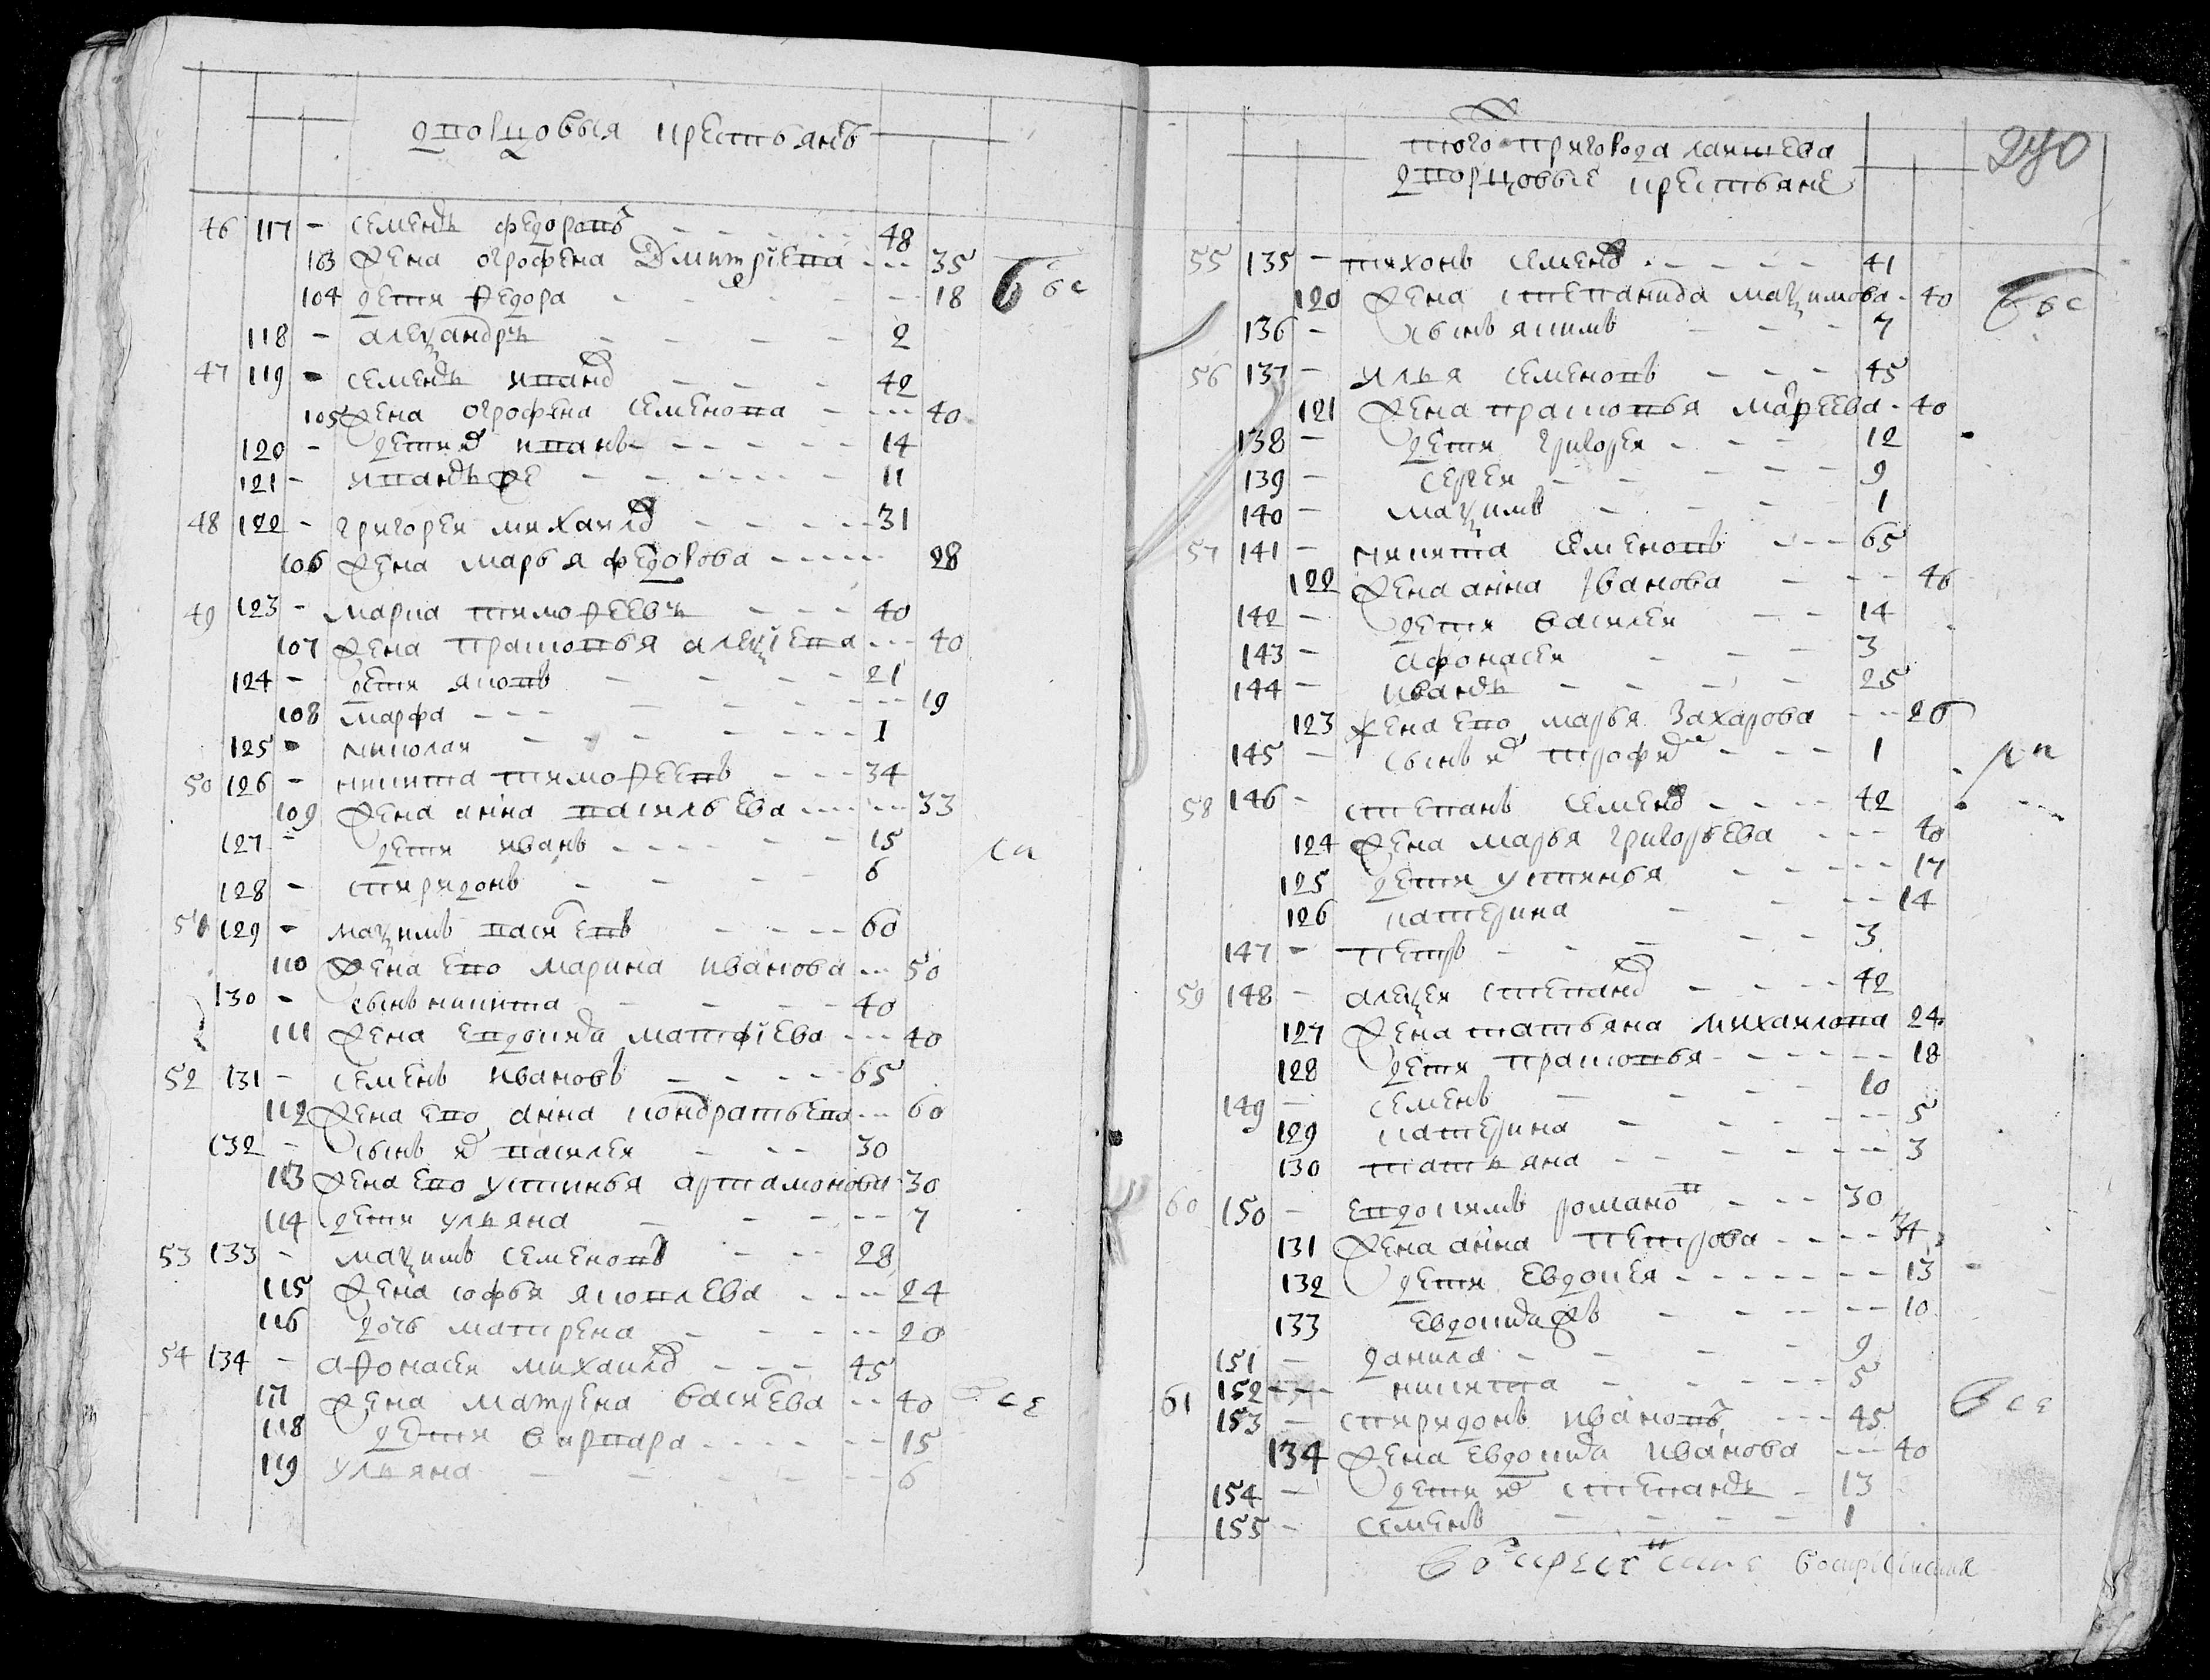 дворцовыя крестьянъ
46 117 – семенъ федоровъ – – – 48
103 жена огрофена Дмитріева – – – 35
104 дети федора – – – 18
118 – алеѯандръ – – – 2
47 119 – семенъ иванов – – – 42
105 жена огрофена семенова – – – 40
120 – дети ихъ иванъ – – – 14
121 – иванъ же – – – 11
48 122 – григореи михаилов – – – 31
106 жена марья федорова – – – 28
49 123 – марка тимофеевъ – – – 40
107 жена прасковья алеѯіева – – – 40
124 – дети яковъ – – – 21
108 марфа – – – 19
125 – николаи – – – 1
50 126 – никита тимофеевъ – – – 34
109 жена анна васильева – – – 33
127 – дети иванъ – – – 15
128 – спиридонъ – – – 6
51 129 – маѯимъ васиевъ – – – 60
110 жена ево марина иванова – – – 50
130 – сынъ никита – – – 40
111 жена евдокида матфіева – – – 40
52 131 – семенъ ивановъ – – – 65
112 жена ево анна кондратьева – – – 60
132 – сынъ их василеи – – – 30
113 жена ево устинья артамонова 30
114 дети ульяна – – – 7
53 133 – маѯимъ семеновъ – – – 28
115 жена софья яковлева – – – 24
116 дочь матрена – – – 20
54 134 – афонасеи михаилов – – – 45
117 жена матрена васиева – – – 40
118 дети варвара – – – 15
119 ульяна – – – 6
240
того пригорода лаишева
дворцовые крестьяне
55 135 – тихонъ семенов – – – 41
120 жена степанида маѯимова – 40
136 – сынъ якимъ – – – 7
56 137 – илья семеновъ – – – 45
121 жена прасковья макеева – 40
138 – дети григореи – – – 12
139 – сергеи – – – 9
140 – маѯимъ – – – 1
57 141 – никита семеновъ – – – 65
122 жена анна іванова – – – 46
142 – дети василеи – – – 14
143 – афонасеи – – – 3
144 – иванъ – – – 25
123 жена ево марья захарова – – – 26
145 – сынъ их трофим – – – 1
58 146 – степанъ семенов – – – 42
124 жена марья григорьева – – – 40
125 дети устинья – – – 17
126 катерина – – – 14
147 – петръ – – – 3
59 148 – алеѯеи степанов – – – 42
127 жена татьяна михаилова 24
128 дети прасковья – – – 18
149 – семенъ – – – 10
129 катерина – – – 5
130 татьяна – – – 3
60 150 – евдокимъ романов – – – 30
131 жена анна петрова – – – 34
132 дети евдокея – – – 13
133 евдокида жъ – – – 10
151 – данила – – – 9
152 – – – никита – – – 5
61 153 – спиридонъ ивановъ – – – 45
134 жена евдокида иванова – – – 40
154 – дети их степанъ – 13
155 – семенъ – – – 1